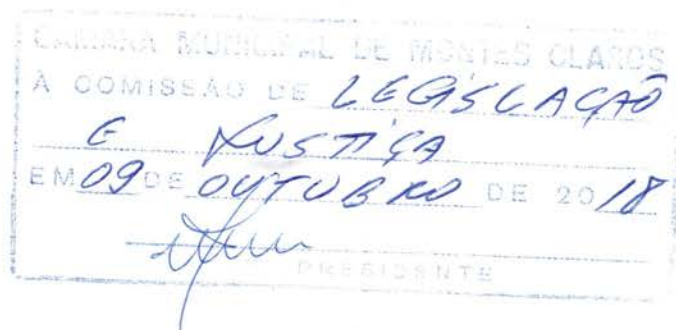 CAMARA MUNICIPAL DE MONTES CLAROS
À COMISSÃO DE LEGISLAÇÃO
E JUSTIÇA
EM 09 DE OUTUBRO DE 2018
PRESIDENTE